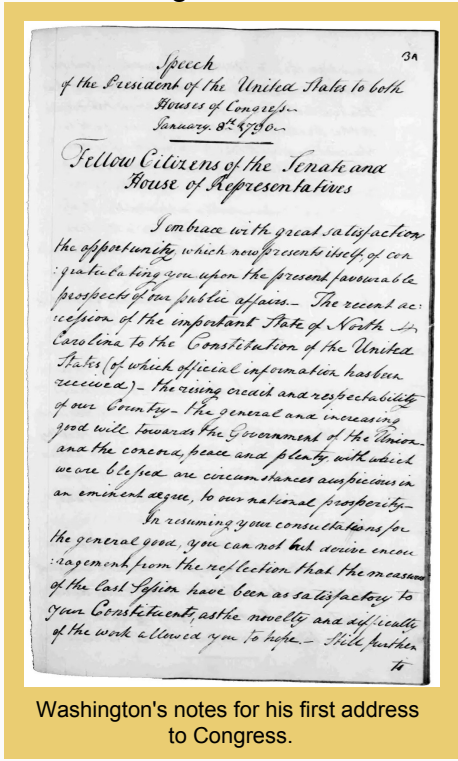 3A
Speech
of the President of the United States to both
Houses of Congress
January. 8th 1790
Fellow Citizens of the Senate and
House of Representatives
I embrace with great satisfaction
the opportunity, which now presents itself, of con
:gratulating you upon the present favourable
prospects of our public affairs. – The recent ac:
cession of the important State of North
Carolina to the Constitution of the United
States (of which official information has been
received) – the rising credit and respectability
of our Country – the general and increasing
good will towards the Government of the Union
and the concord, peace and plenty, with which
we are blessed are circumstances auspicious in
an eminent degree, to our national prosperity –
In resuming your consultations for
the general good, you can not but derive encou
:ragement from the reflection that the measures
of the last Session have been as satisfactory to
your Constituents, as the novelty and difficulty
of the work allowed you to hope. – Still further
to
Washington's notes for his first address
to Congress.